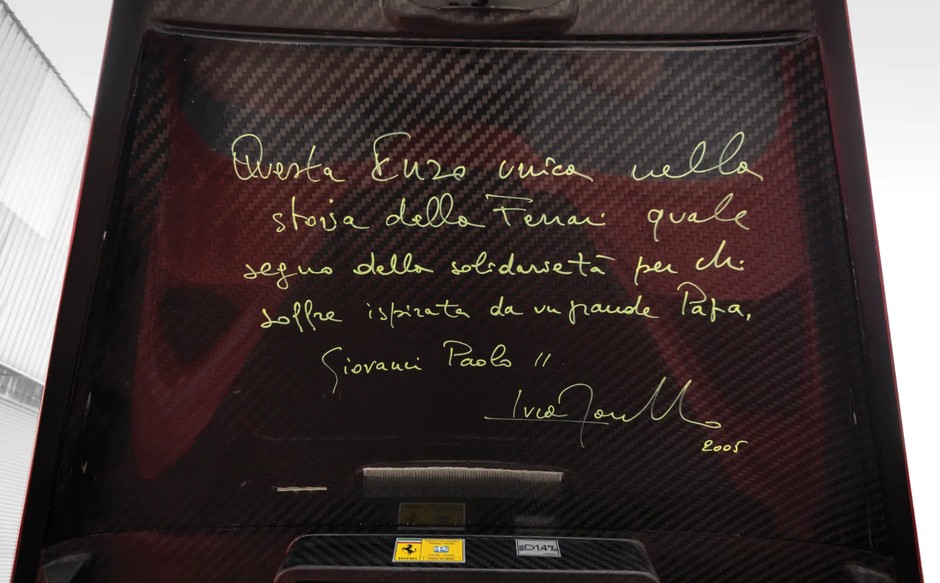 Questa Enzo unica nella
storia della Ferrari quale
segno della solidarietà per chi
soffre ispirata da un grande Papa,
Giovanni Paolo II
2005
Ferrari